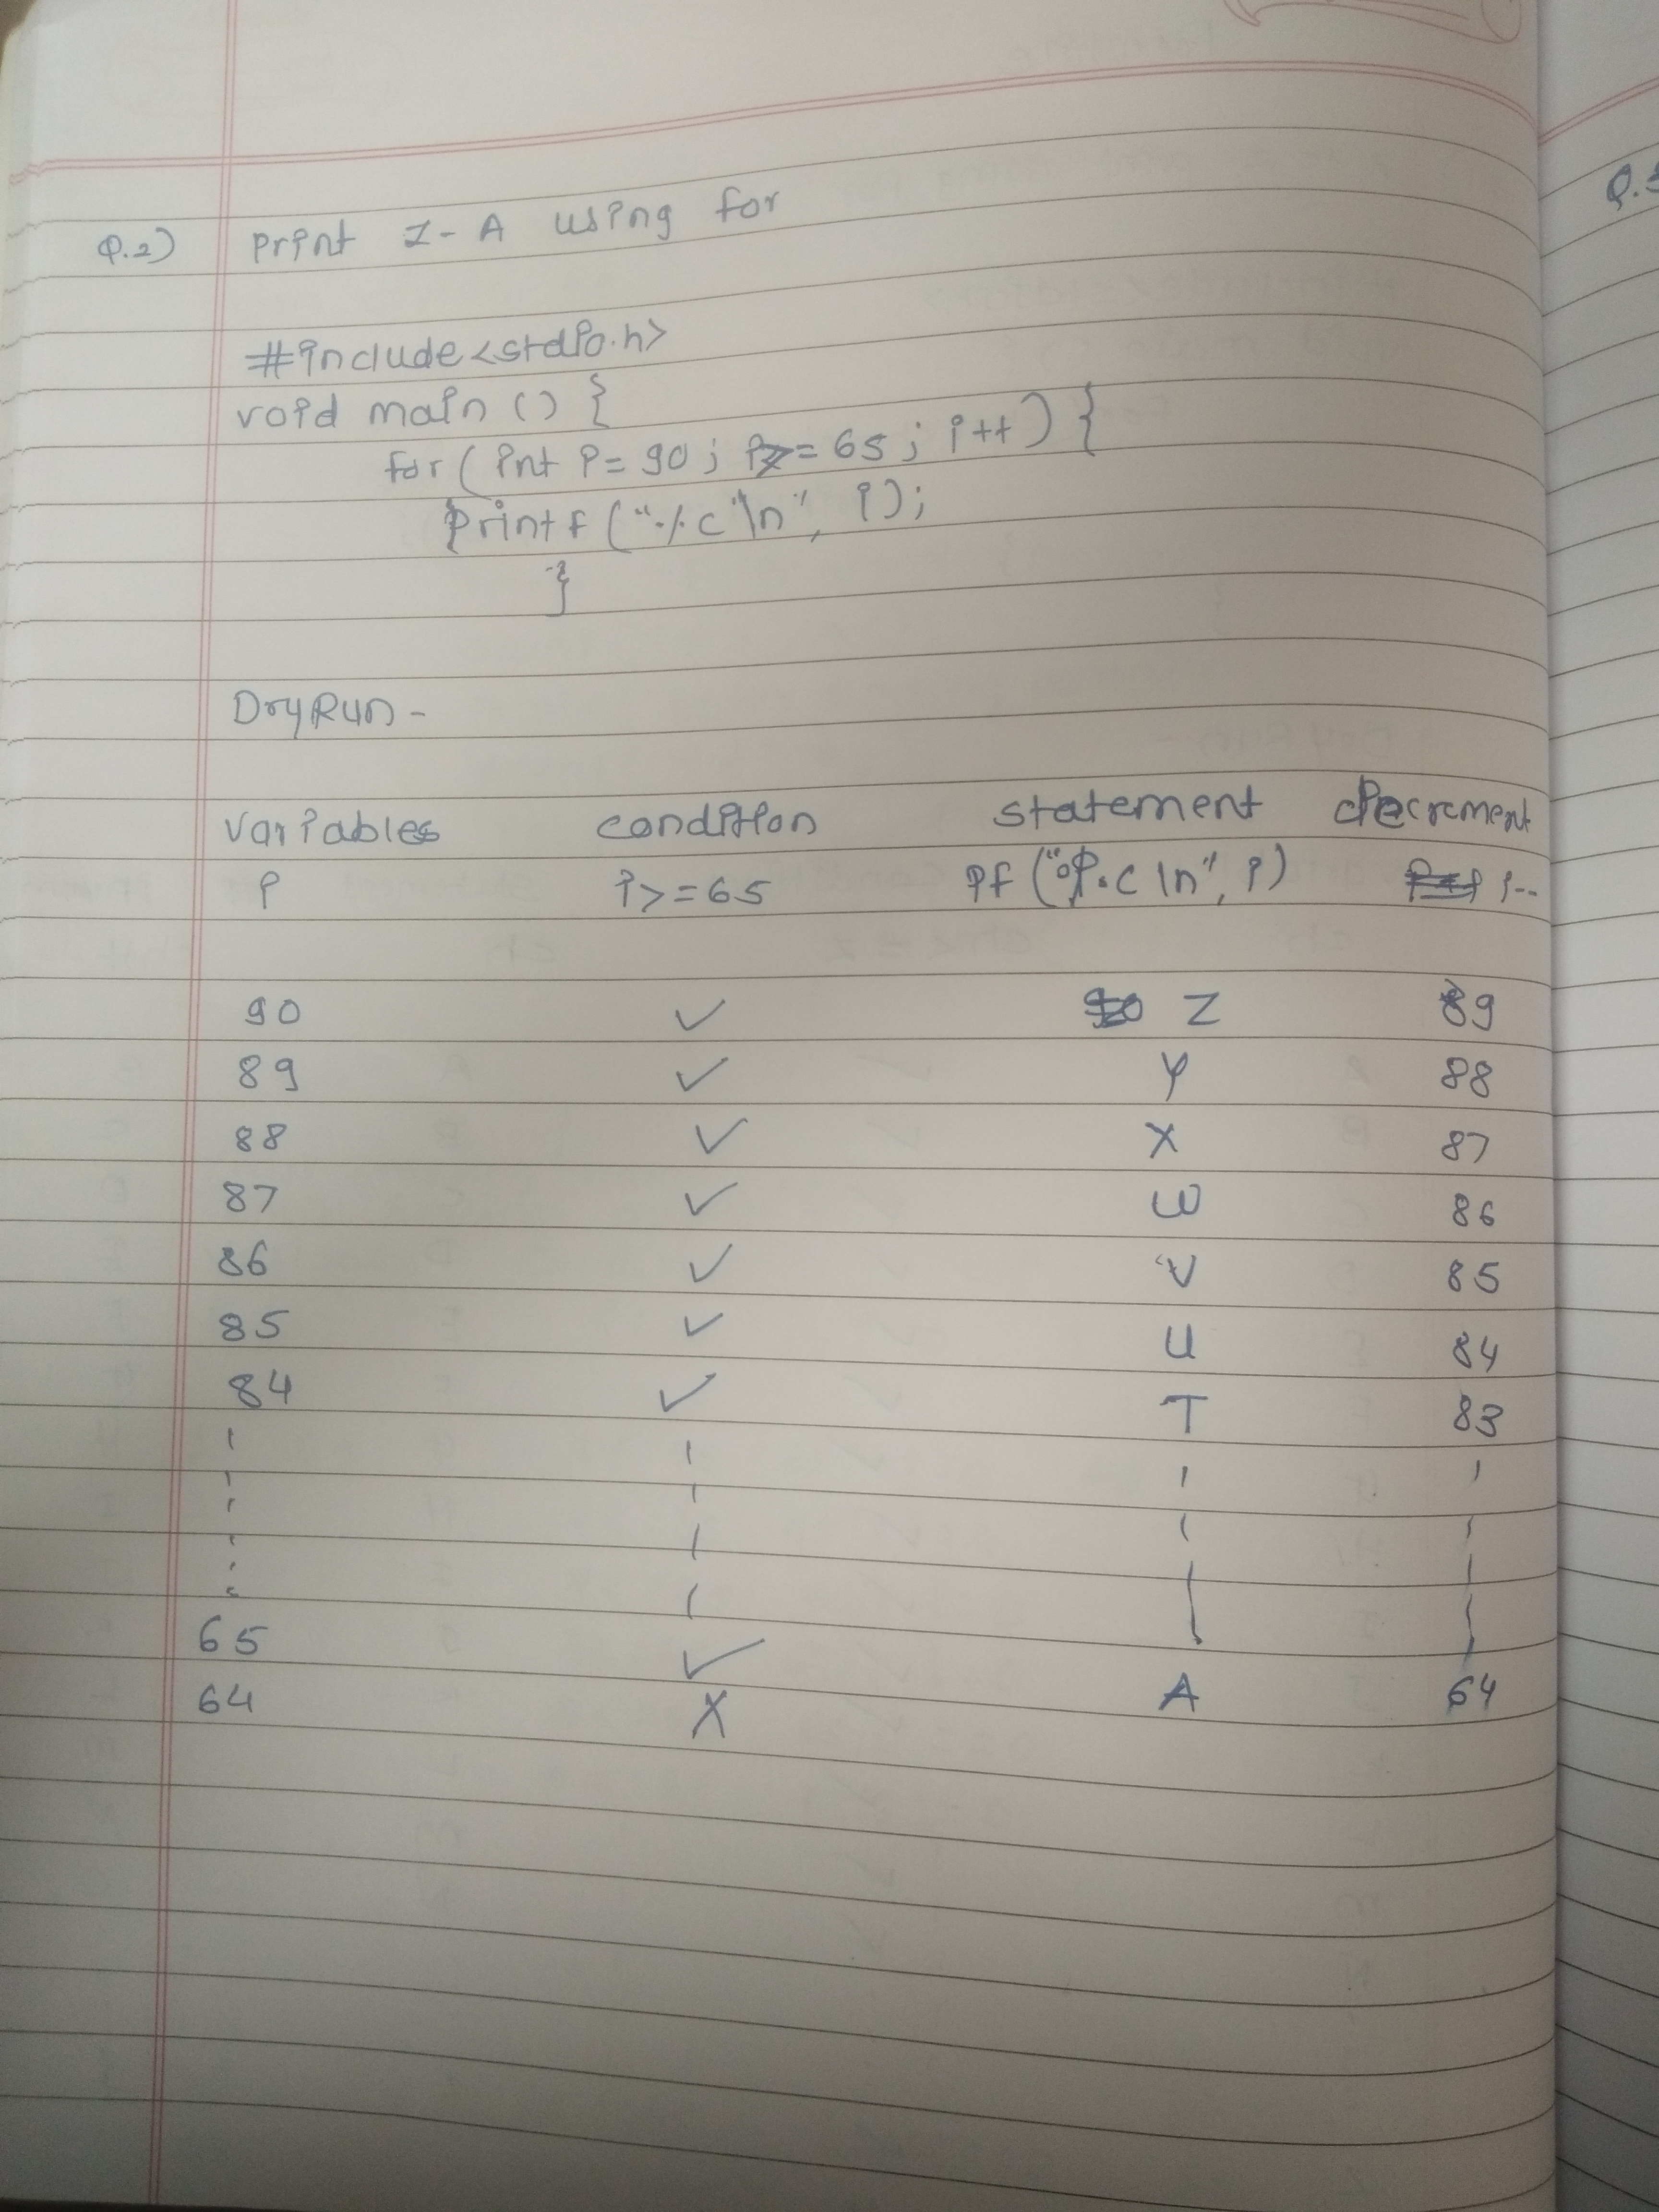 Q.2) Print Z-A using for
#include<stdio.h>
void main () {
for( int i= 90 ; i>= 65 ; i++ ) {
printf ("%c \n", i);
}
DryRun -
variables condition statement decrement
i i>=65 pf ("%c \n", i) i--
90 ✓ Z 89
89 ✓ Y 88
88 ✓ X 87
87 ✓ W 86
86 ✓ V 85
85 ✓ U 84
84 ✓ T 83
65 ✓
64 X A 64